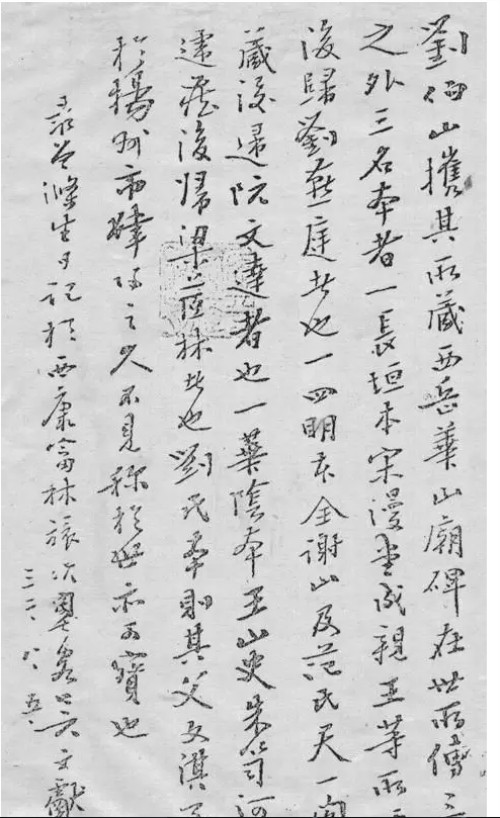 劉伯山攜其所藏西岳華山廟碑在世所傳三
之外三名本者一長垣本宋漫堂成親王等所
後歸劉燕庭者也一四明本全謝山及范氏天一閣
藏後歸阮文達者也一華陰本王山史朱笥河
遞藏後歸梁茝林者也劉氏本則其父文淇
於揚州市肆得之人不見稱於世亦可寶也
录曾滌生日記於西康富林旅次 文獻
三二、八、五、